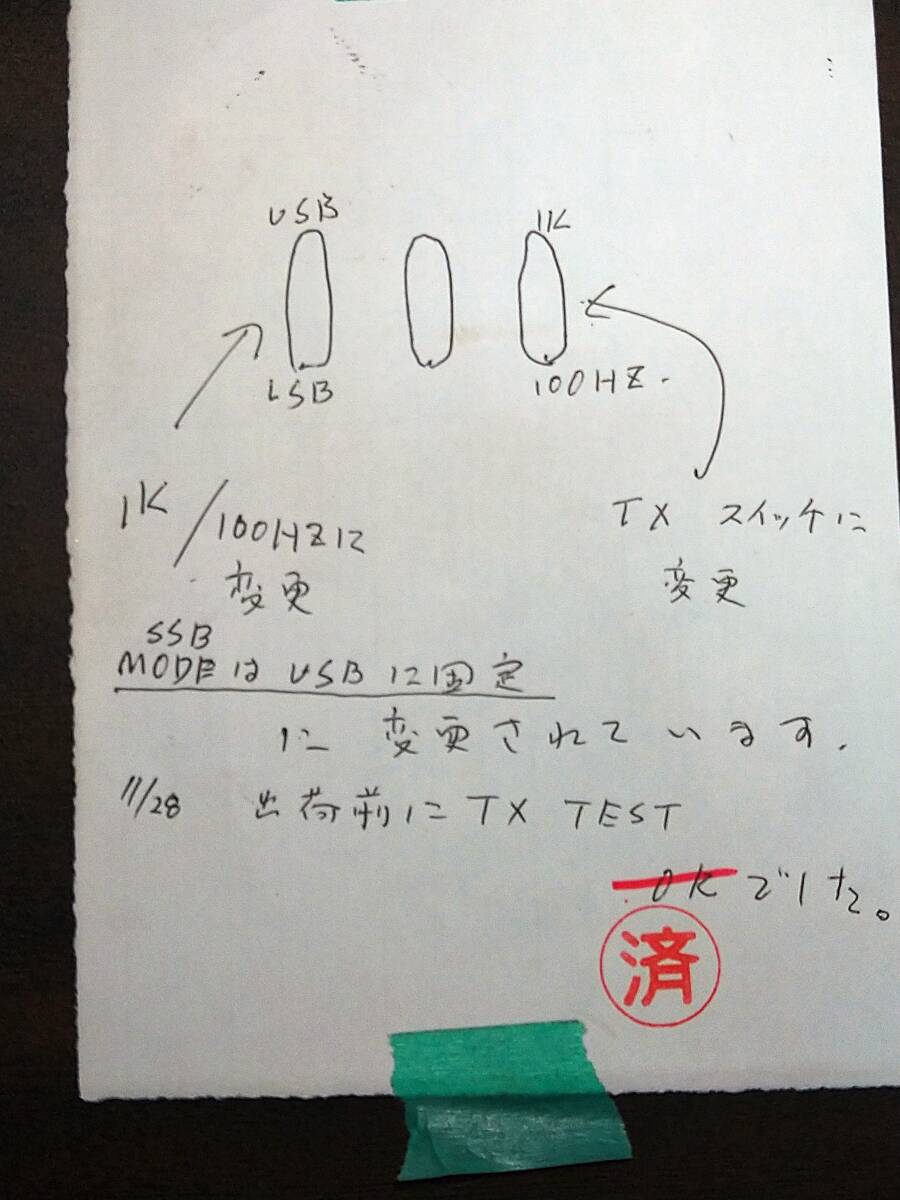 USB
1K
LSB
100HZ.
1K/100HZに
変更
TX スイッチに
変更
SSB
MODEは USBに固定
に 変更されています.
11/28 出荷前に TX TEST
OKでした。
済